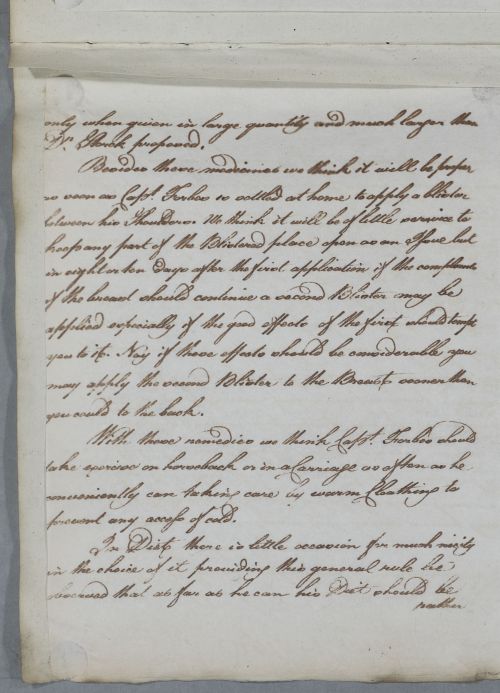 only when given in large quantity and much larger than
Dr. Storck proposed.
Besides these medicines we think it will be proper
so soon as Capt. Forbes is settled at home to apply a blister
between his Shoulders. We think it will be of little service to
keep any part of the Blistered place open as an Issue but
in eight or ten days after the first application if the complaints
of the breast should continue a second Blister may be
applied especially if the good effects of the first should tempt
you to it. Nay if these effects should be considerable you
may apply the second Blister to the Breast sooner than
you could to the back.
With these remedies we think Capt. Forbes should
take exercise on horseback or in a Carriage as often as he
conveniently can taking care by warm Cloathing to
prevent any access of cold.
In Diet there is little occasion for much nicity
in the choice of it providing this general rule be
observed that as far as he can his Diet should be
rather